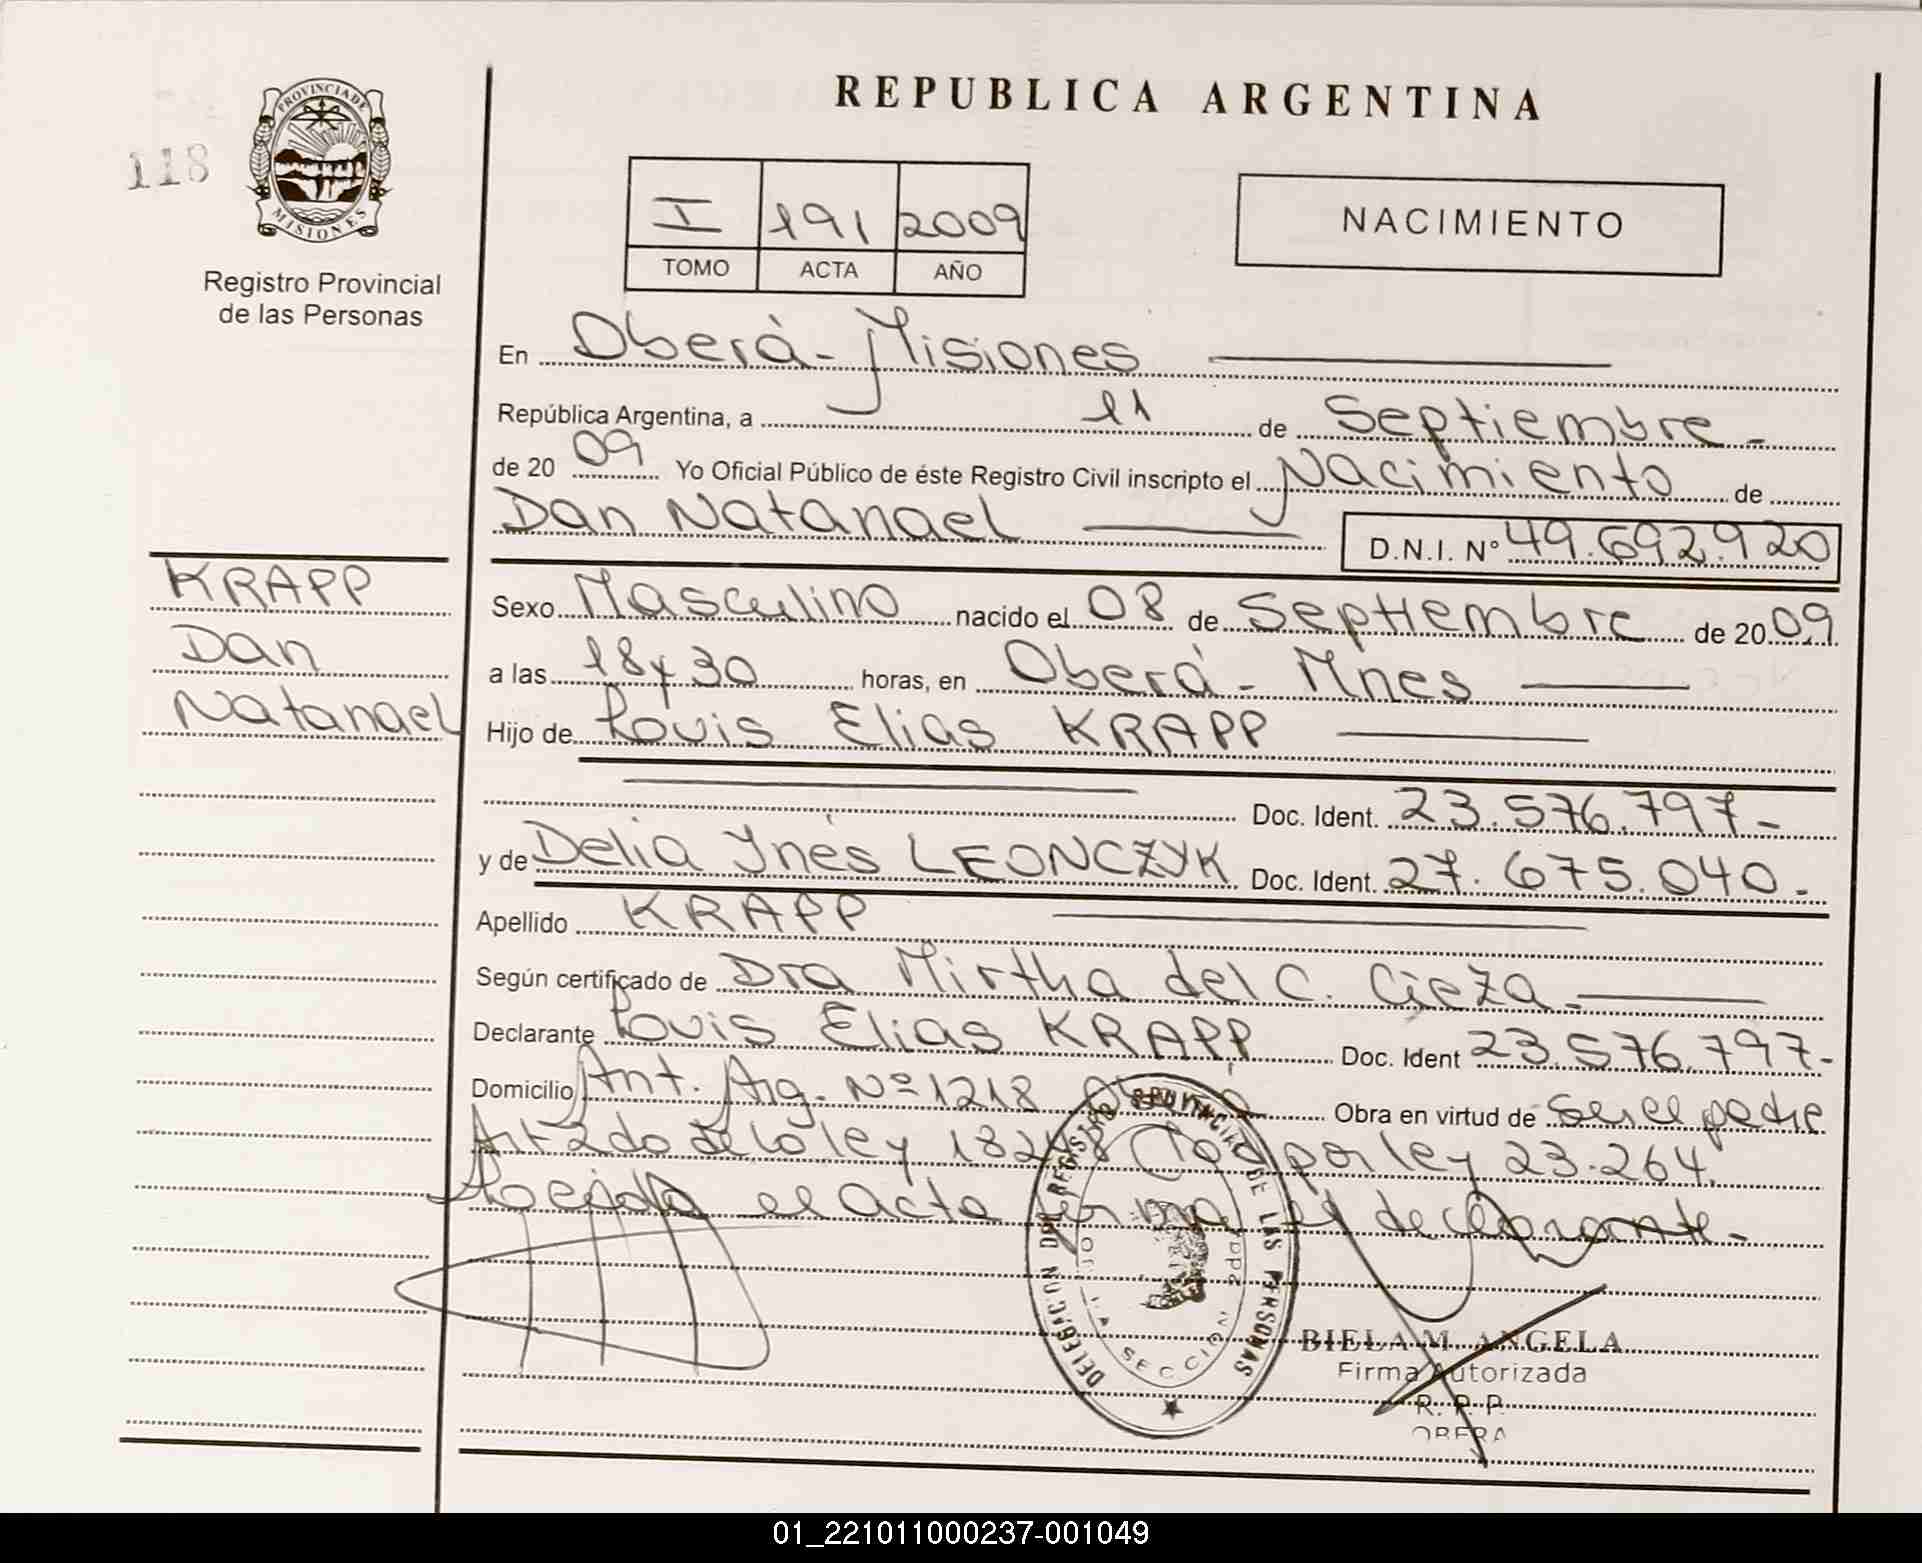 REPUBLICA ARGENTINA
118
PROVINCIA DE
MISIONES
Registro Provincial
de las Personas
I 191 2009
TOMO ACTA AÑO
NACIMIENTO
En Oberá - Misiones
República Argentina, a 11 de Septiembre -
de 20 09 Yo Oficial Público de éste Registro Civil inscripto el Nacimiento de
Dan Natanael D.N.I. N° 49.692.920
KRAPP
Dan
Natanael
Sexo Masculino nacido el 08 de Septiembre de 20 09
a las 18 y 30 horas, en Oberá - Mnes
Hijo de Louis Elias KRAPP
Doc. Ident. 23.576.797 -
y de Delia Ynés LEONCZYK Doc. Ident. 27.675.040 -
Apellido KRAPP
Según certificado de Dra Mirtha del C. Cieza -
Declarante Louis Elias KRAPP Doc. Ident 23.576.797 -
Domicilio Ant. Arg. Nº 1218 Obra en virtud de ser el padre
Art 2do de la ley 18248 por ley 23.264.
el acta firma el declarante -
DELEGACION DEL REGISTRO PROVINCIAL DE LAS PERSONAS
SECCION 2da
BIELA M. ANGELA
Firma Autorizada
R. P. P.
OBERA
01_221011000237-001049